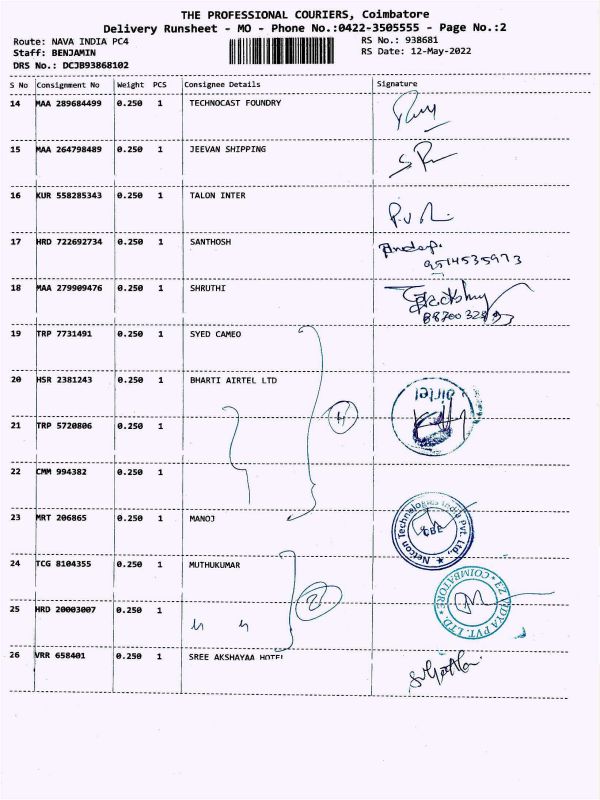 THE PROFESSIONAL COURIERS, Coimbatore
Delivery Runsheet - MO - Phone No.:0422-3505555 - Page No.:2
Route: NAVA INDIA PC4 RS No.: 938681
Staff: BENJAMIN RS Date: 12-May-2022
DRS No.: DCJB93868102
S No Consignment No Weight PCS Consignee Details Signature
14 MAA 289684499 0.250 1 TECHNOCAST FOUNDRY
15 MAA 264798489 0.250 1 JEEVAN SHIPPING
16 KUR 558285343 0.250 1 TALON INTER
17 HRD 722692734 0.250 1 SANTHOSH
9514535973
18 MAA 279909476 0.250 1 SHRUTHI
19 TRP 7731491 0.250 1 SYED CAMEO
20 HSR 2381243 0.250 1 BHARTI AIRTEL LTD
airtel
21 TRP 5720806 0.250 1
22 CMM 994382 0.250 1
23 MRT 206865 0.250 1 MANOJ
Netcon Technologies India Pvt. Ltd.,
CBE
24 TCG 8104355 0.250 1 MUTHUKUMAR
25 HRD 20003007 0.250 1
PVT. LTD. * COIMBATORE *
26 VRR 658401 0.250 1 SREE AKSHAYAA HOTEL